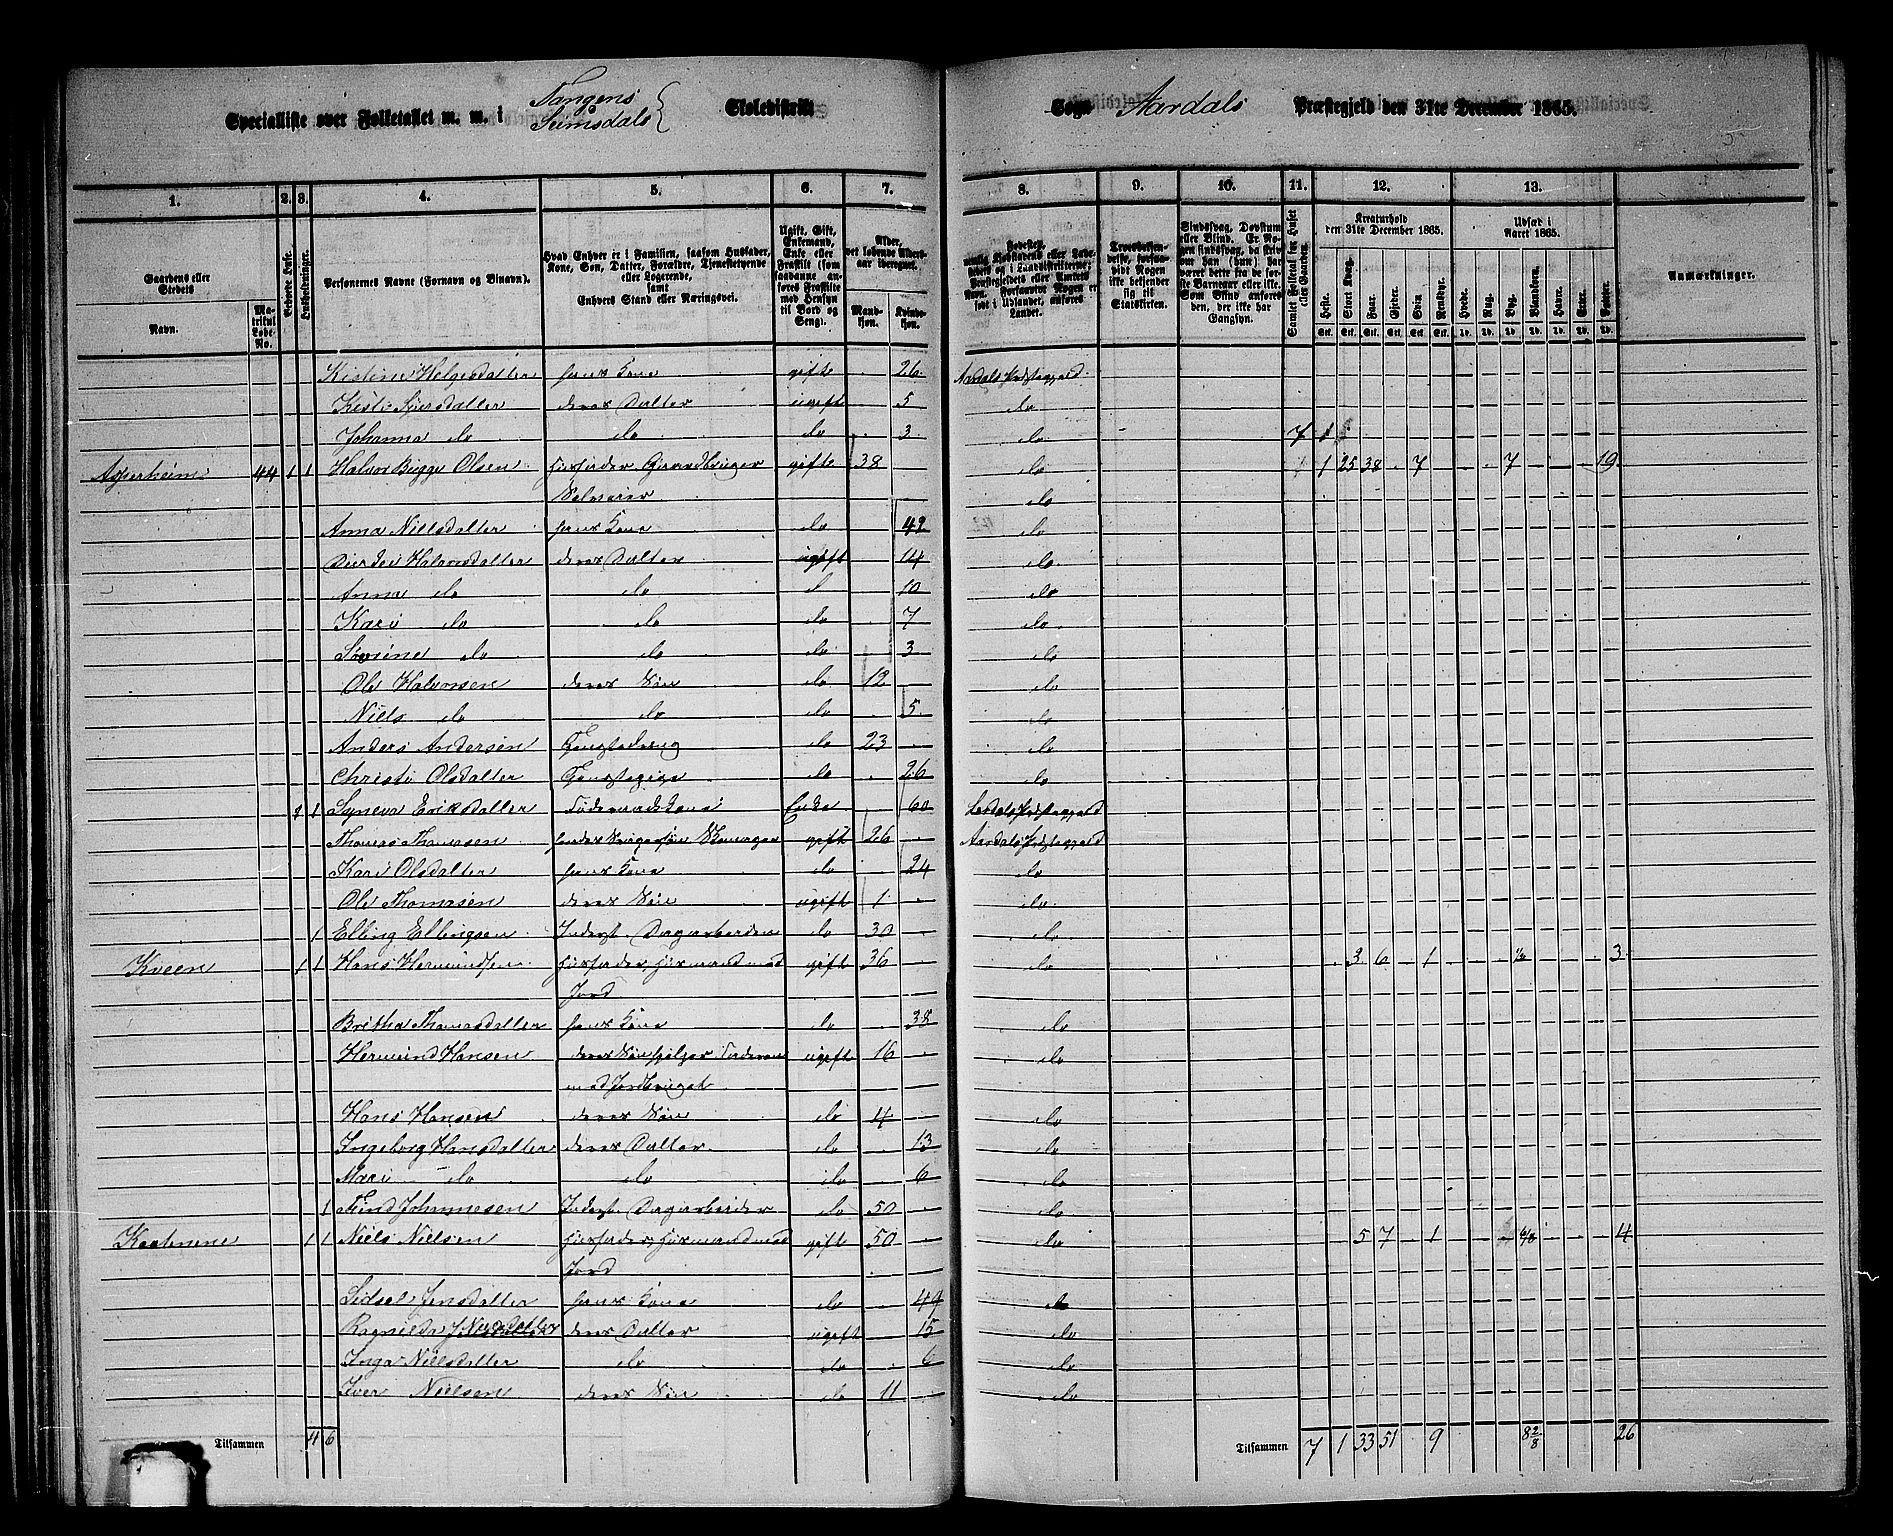 Specialliste over Folketallet m. m. i Tangens & Seimsdals Skoledistrikt Sogn Aardals Præstegjeld den 31te December 1865.
1. 2. 3. 4. 5. 6. 7. 8. 9. 10. 11. 12. 13.
Gaardens eller Stedets
Navn. Matrikul Løbe-No.
Beboede Huse.
Husholdninger.
Personernes Navne (Fornavn og Tilnavn).
Hvad Enhver er i Familien, saasom Husfader, Kone, Søn, Datter, Forældre, Tjenestetyende eller Logerende, samt Enhvers Stand eller Næringsvei.
Ugift, Gift, Enkemand, Enke eller Fraskilt (som saadanne anføres Fraskilte med Hensyn til Bord og Seng).
Alder, det løbende Aldersaar iberegnet.
Mandkjøn. Kvindekjøn.
Samlet Folketal for Huset eller Gaarden.
Kreaturhold den 31te December 1865.
Heste. Stort Kvæg. Faar. Gjeder. Svin. Rensdyr.
Udsæd i Aaret 1865.
Hvede. Rug. Byg. Blandkorn. Havre. Erter. Poteter.
Anmærkninger.
Kistine Helgesdatter hans Kone gift 26 Aardals Præstegjeld
Kisti Iversdatter deres Datter ugift 5 do
Johanna do do do 3 do 7 1
44 1 1 Halvor Bugge Olsen Husfader Gaardbruger gift 38 do 1 25 38 7 7 19
Selveier do
Anna Nielsdatter hans Kone do 42 do
Halvorsdatter deres Datter ugift 14 do
Anna do do do 10 do
Kari do do do 7 do
Sørine do do do 3 do
Ole Halvorsen deres Søn do 12 do
Niels do do do 5 do
Anders Andersen Tjenestedreng do 23 do
Christi Olsdatter Tjenestepige do 26 do
1 1 Syneva Eriksdatter Føderaadskone Enke 60 Lerdals Præstegjeld
Thomas Thomasen gift 26 Aardals Præstegjeld
Kari Olsdatter hans Kone do 24 do
Ole Thomasen deres Søn ugift 1 do
1 Elling Ellingsen Inderst. Dagarbeider do 30 do
Kveen 1 1 Hans Hermundsen Husfader, Husmand med gift 36 do 3 6 1 3
Jord
Britha Thomasdatter hans Kone do 38 do
Hermund Hansen deres Søn hjælper Faderen ugift 16 do
med Jordbruget
Hans Hansen deres Søn do 4 do
Ingeborg Hansdatter deres Datter do 13 do
Mari do do do 6 do
1 Johannesen Inderst. Dagarbeider do 50 do
1 1 Niels Nielsen Husfader, Husmand med gift 50 do 5 7 1 4
Jord
Sidsel Jensdatter hans Kone do 49 do
Ragnilda Nielsdatter deres Datter ugift 15 do
Inga Nielsdatter do do 6 do
Iver Nielsen deres Søn do 11 do
Tilsammen 4 6 Tilsammen 7 1 33 51 9 8 2/8 26